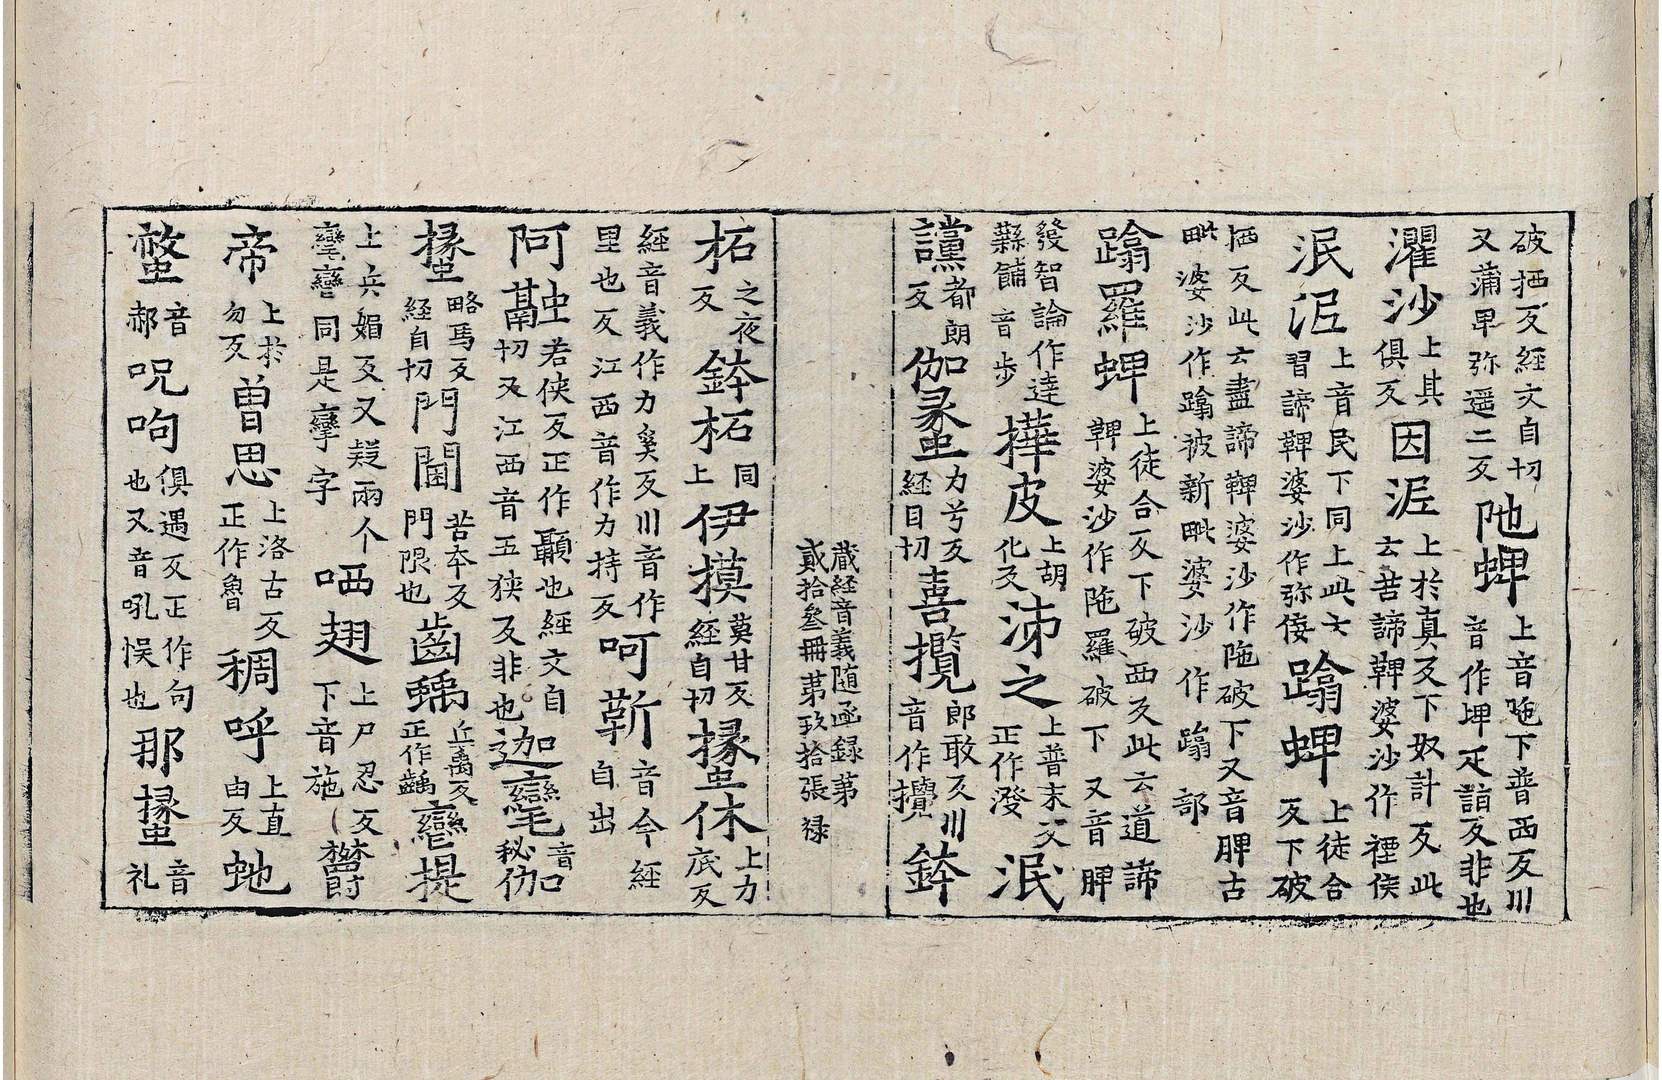 破栖反經文自切
又蒲卑弥遥二反
陁蜱
上音陁下普西反川
音作埤疋詣反非也
濯沙
上其
俱反
因泥
上於真反下奴計反此
云苦諦鞞婆沙作禋侫
泯泥
上音民下同上此云
習諦鞞婆沙作弥倿
蹹蜱
上徒合
反下破
栖反此云盡諦鞞婆沙作陁破下又音脾古
毗婆沙作蹹被新毗婆沙作蹹部
蹹羅蜱
上徒合反下破西反此云道諦
鞞婆沙作陁羅破下又音脾
發智論作達
䔧
餔
音步
樺皮
上胡
化反
沛之
上普末反
正作潑
泯
讜
都朗
反
伽䗍
力兮反
經自切
喜攬
郎敢反川
音作攪
鉢
藏經音義随函録第
貳拾叁冊第玖拾張 禄
柘
之夜
反
鉢柘
同
上
伊摸
莫甘反
經自切
㨽休
上力
底反
經音義作力奚反川音作
里也反江西音作力持反
呵蘄
音今經
自出
阿䖤
若侠反正作顳也經文自
切又江西音五狭反非也
迦㲶
音
秘
伽
㨽
略焉反
經自切
門閫
苦本反
門限也
齒䗁
丘禹反
正作齲
戀提
上兵媚反又疑兩个
同是孿字
哂翅
上尸忍反
下音施
欝
帝
上於
勿反
曽思
上洛古反
正作魯
稠呼
上直
由反
虵
螫
音
郝
呪呴
俱遇反正作句
也又音吼悮也
那㨽
音
礼